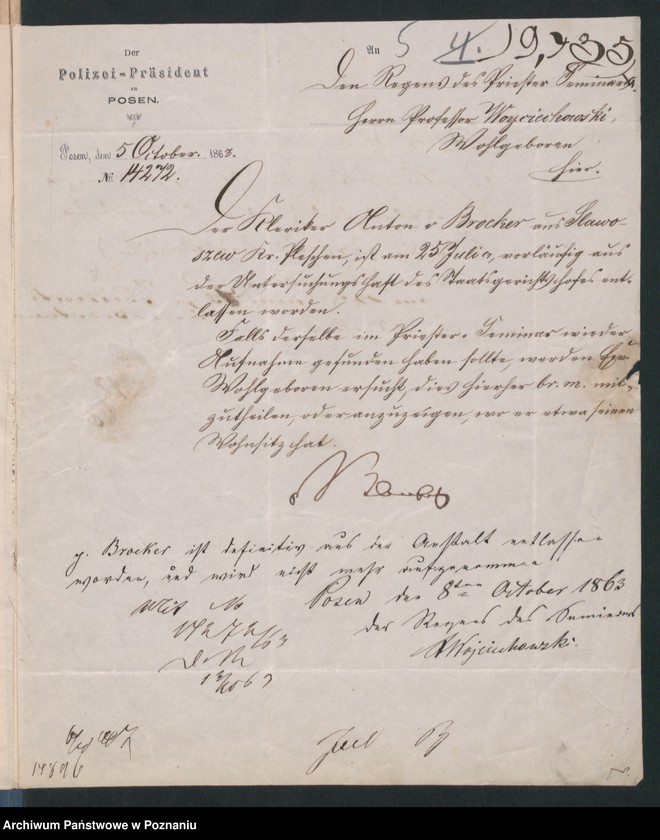 Der
Polizei-Präsident
zu
POSEN.
Posen, den 5 October. 1863.
№ 14272.
An
Den Regens des Priester Seminars.
Herrn Professor Woyciechowski,
Wohlgeboren
hier.
Der Kleriker Anton v Brocker aus Slawo-
szew Kr. Pleschen, ist am 25 Juli c, vorläufig aus
der Untersuchungshaft des Staatsgerichtshofes ent-
lassen worden.
Falls derselbe im Priester-Seminar wieder
Aufnahme gefunden haben sollte, werden Ew.
Wohlgeboren ersucht, dies hierher br. m. mit-
zutheilen, oder anzuzeigen, wo er etwa seinen
Wohnsitz hat.
p. Brocker ist definitiv aus der Anstalt entlassen
worden, und wird nicht mehr aufgenommen
Posen den 8ten October 1863
der Regens des Seminars
Wojciechowski